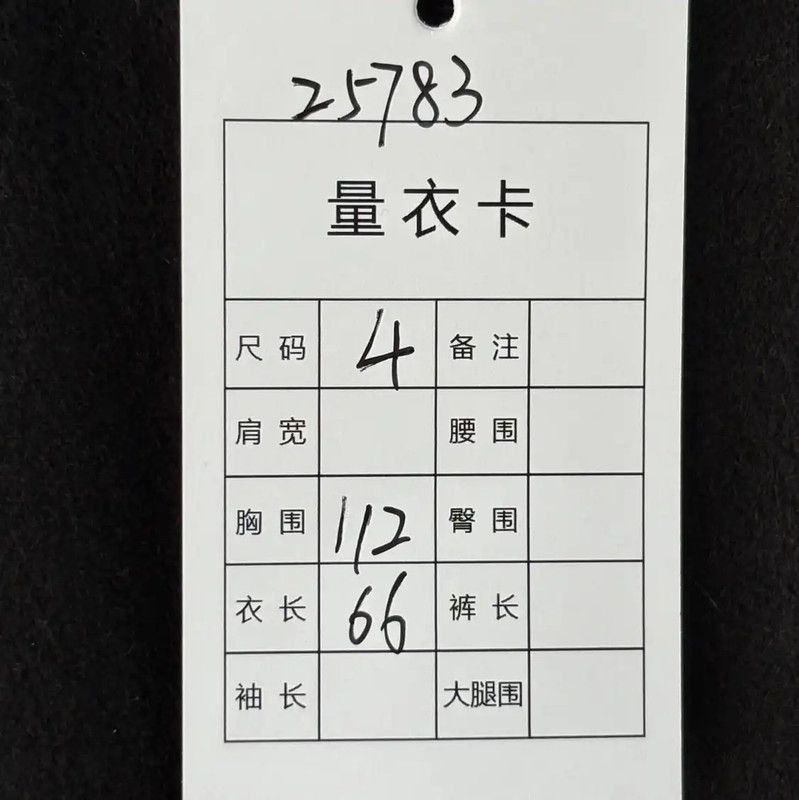 25783
量衣卡
尺码 4 备注
肩宽 腰围
胸围 112 臀围
衣长 66 裤长
袖长 大腿围